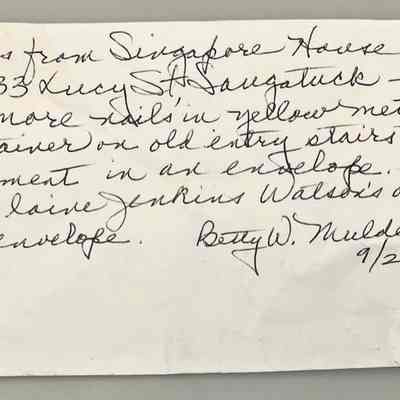 s from Singapore House
33 Lucy St. Saugatuck -
more nails in yellow met
ainer on old entry stairs
ment in an envelope.
laine Jenkins Watson's
envelope. Betty W. Mulde
9/2